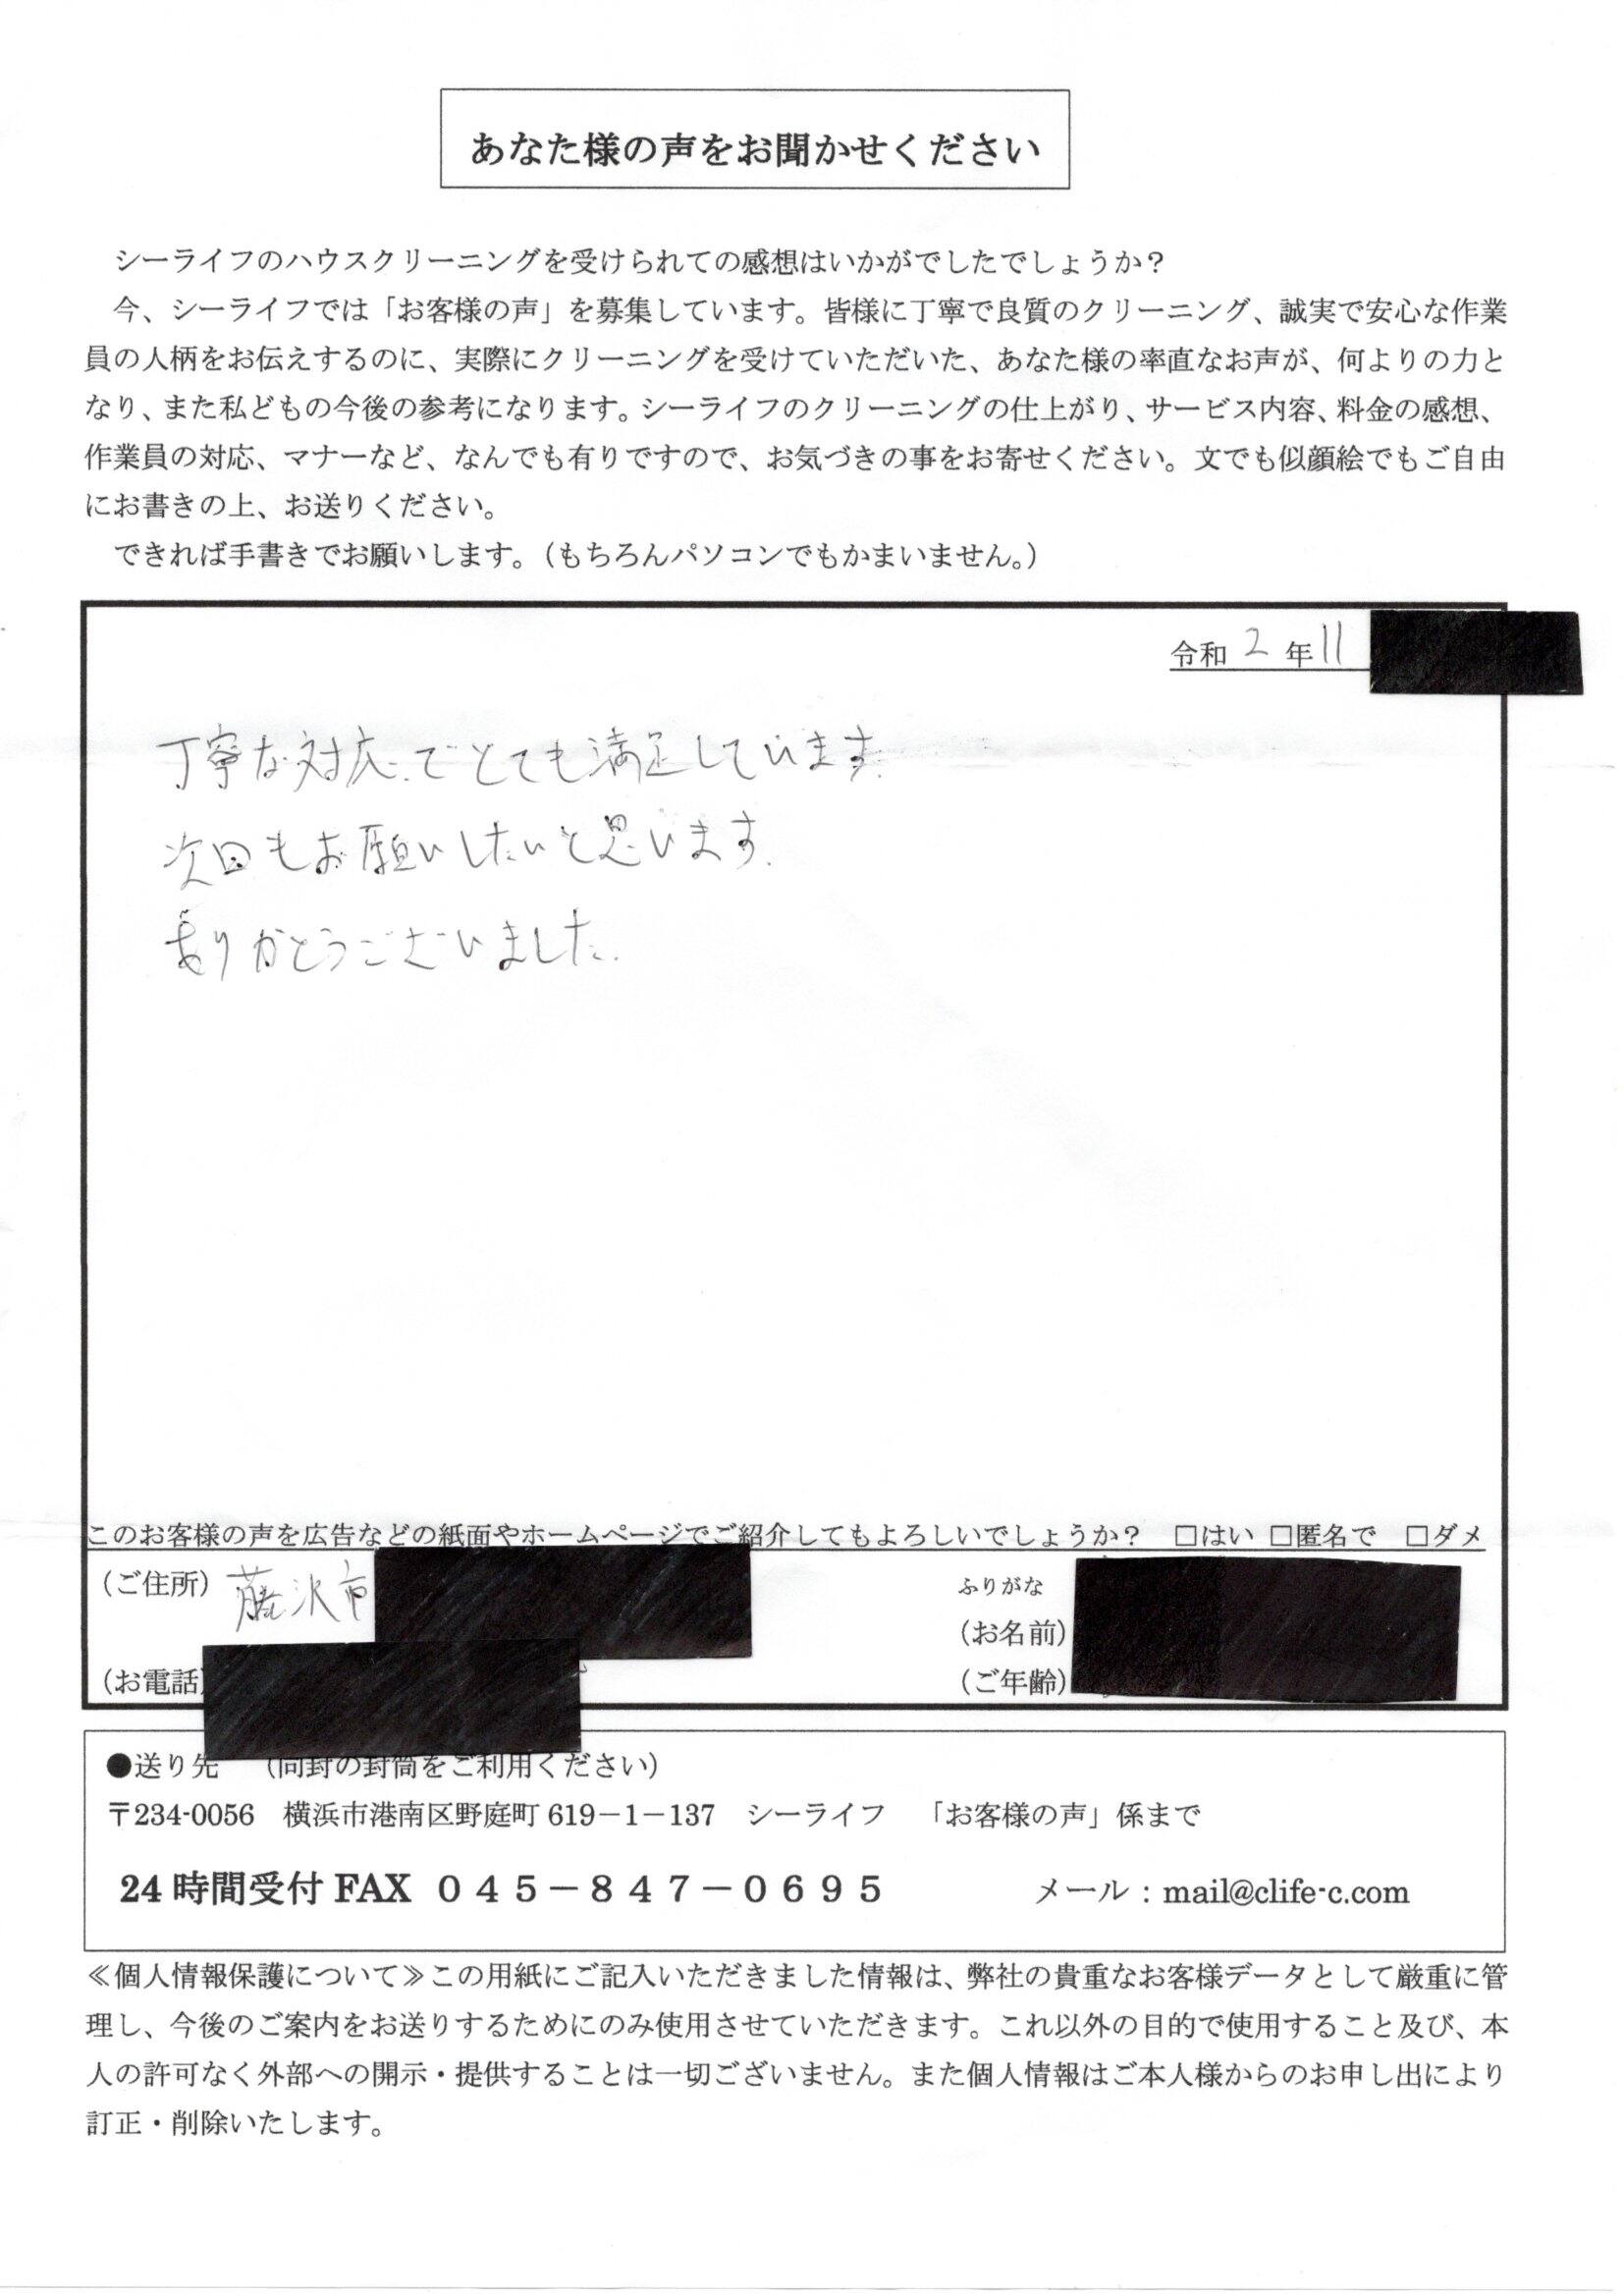 あなた様の声をお聞かせください
シーライフのハウスクリーニングを受けられての感想はいかがでしたでしょうか？
今、シーライフでは「お客様の声」を募集しています。皆様に丁寧で良質のクリーニング、誠実で安心な作業
員の人柄をお伝えするのに、実際にクリーニングを受けていただいた、あなた様の率直なお声が、何よりの力と
なり、また私どもの今後の参考になります。シーライフのクリーニングの仕上がり、サービス内容、料金の感想、
作業員の対応、マナーなど、なんでも有りですので、お気づきの事をお寄せください。文でも似顔絵でもご自由
にお書きの上、お送りください。
できれば手書きでお願いします。（もちろんパソコンでもかまいません。）
令和 2 年 11
丁寧な対応でとても満足しています.
次回もお願いしたいと思います.
ありがとうございました.
このお客様の声を広告などの紙面やホームページでご紹介してもよろしいでしょうか？ □はい □匿名で □ダメ
（ご住所）藤沢市
ふりがな
（お名前）
（お電話）
（ご年齢）
●送り先 （同封の封筒をご利用ください）
〒234-0056 横浜市港南区野庭町 619－1－137 シーライフ 「お客様の声」係まで
24 時間受付 FAX ０４５－８４７－０６９５ メール：mail@clife-c.com
≪個人情報保護について≫この用紙にご記入いただきました情報は、弊社の貴重なお客様データとして厳重に管
理し、今後のご案内をお送りするためにのみ使用させていただきます。これ以外の目的で使用すること及び、本
人の許可なく外部への開示・提供することは一切ございません。また個人情報はご本人様からのお申し出により
訂正・削除いたします。